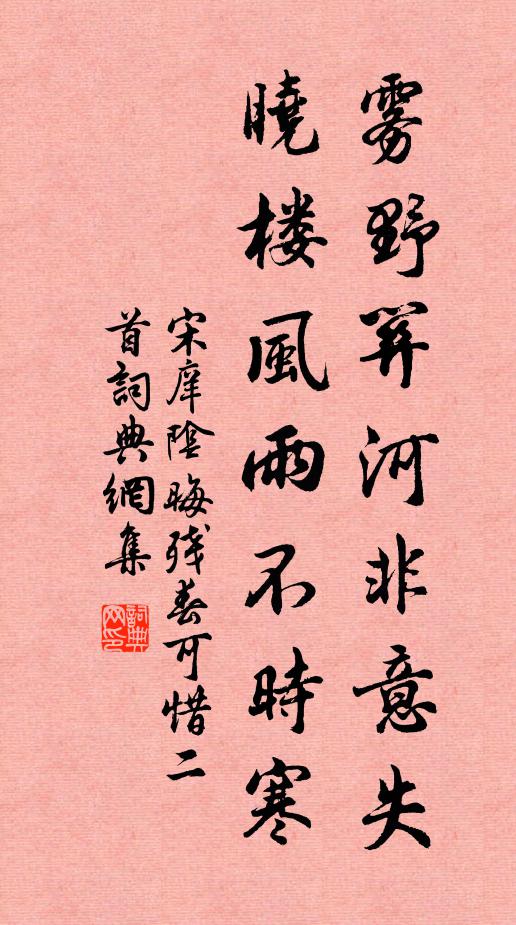 雾野關河非意失
曉楼風雨不時寒
宋庠陰晦残春可惜二
首詞典網集
詞典
网印